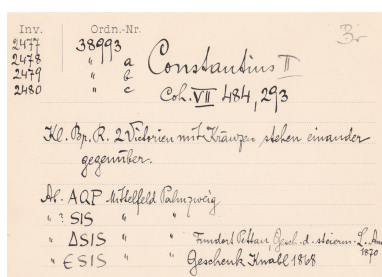 Inv. Ordn.-Nr. Br
2477 38993
2478 " a Constantius II
2479 " b
2480 " c Coh. VII 484, 293
Kl. Br. R. 2 Victorien mit Kränzen stehen einander
gegenüber.
Ab. AQP Mittelfeld Palmzweig
" ? SIS " "
" ΔSIS " " Fundort Pettau, Gesch. d. steierm. L.
1870
" ЄSIS " " Geschenk Knabl 1868